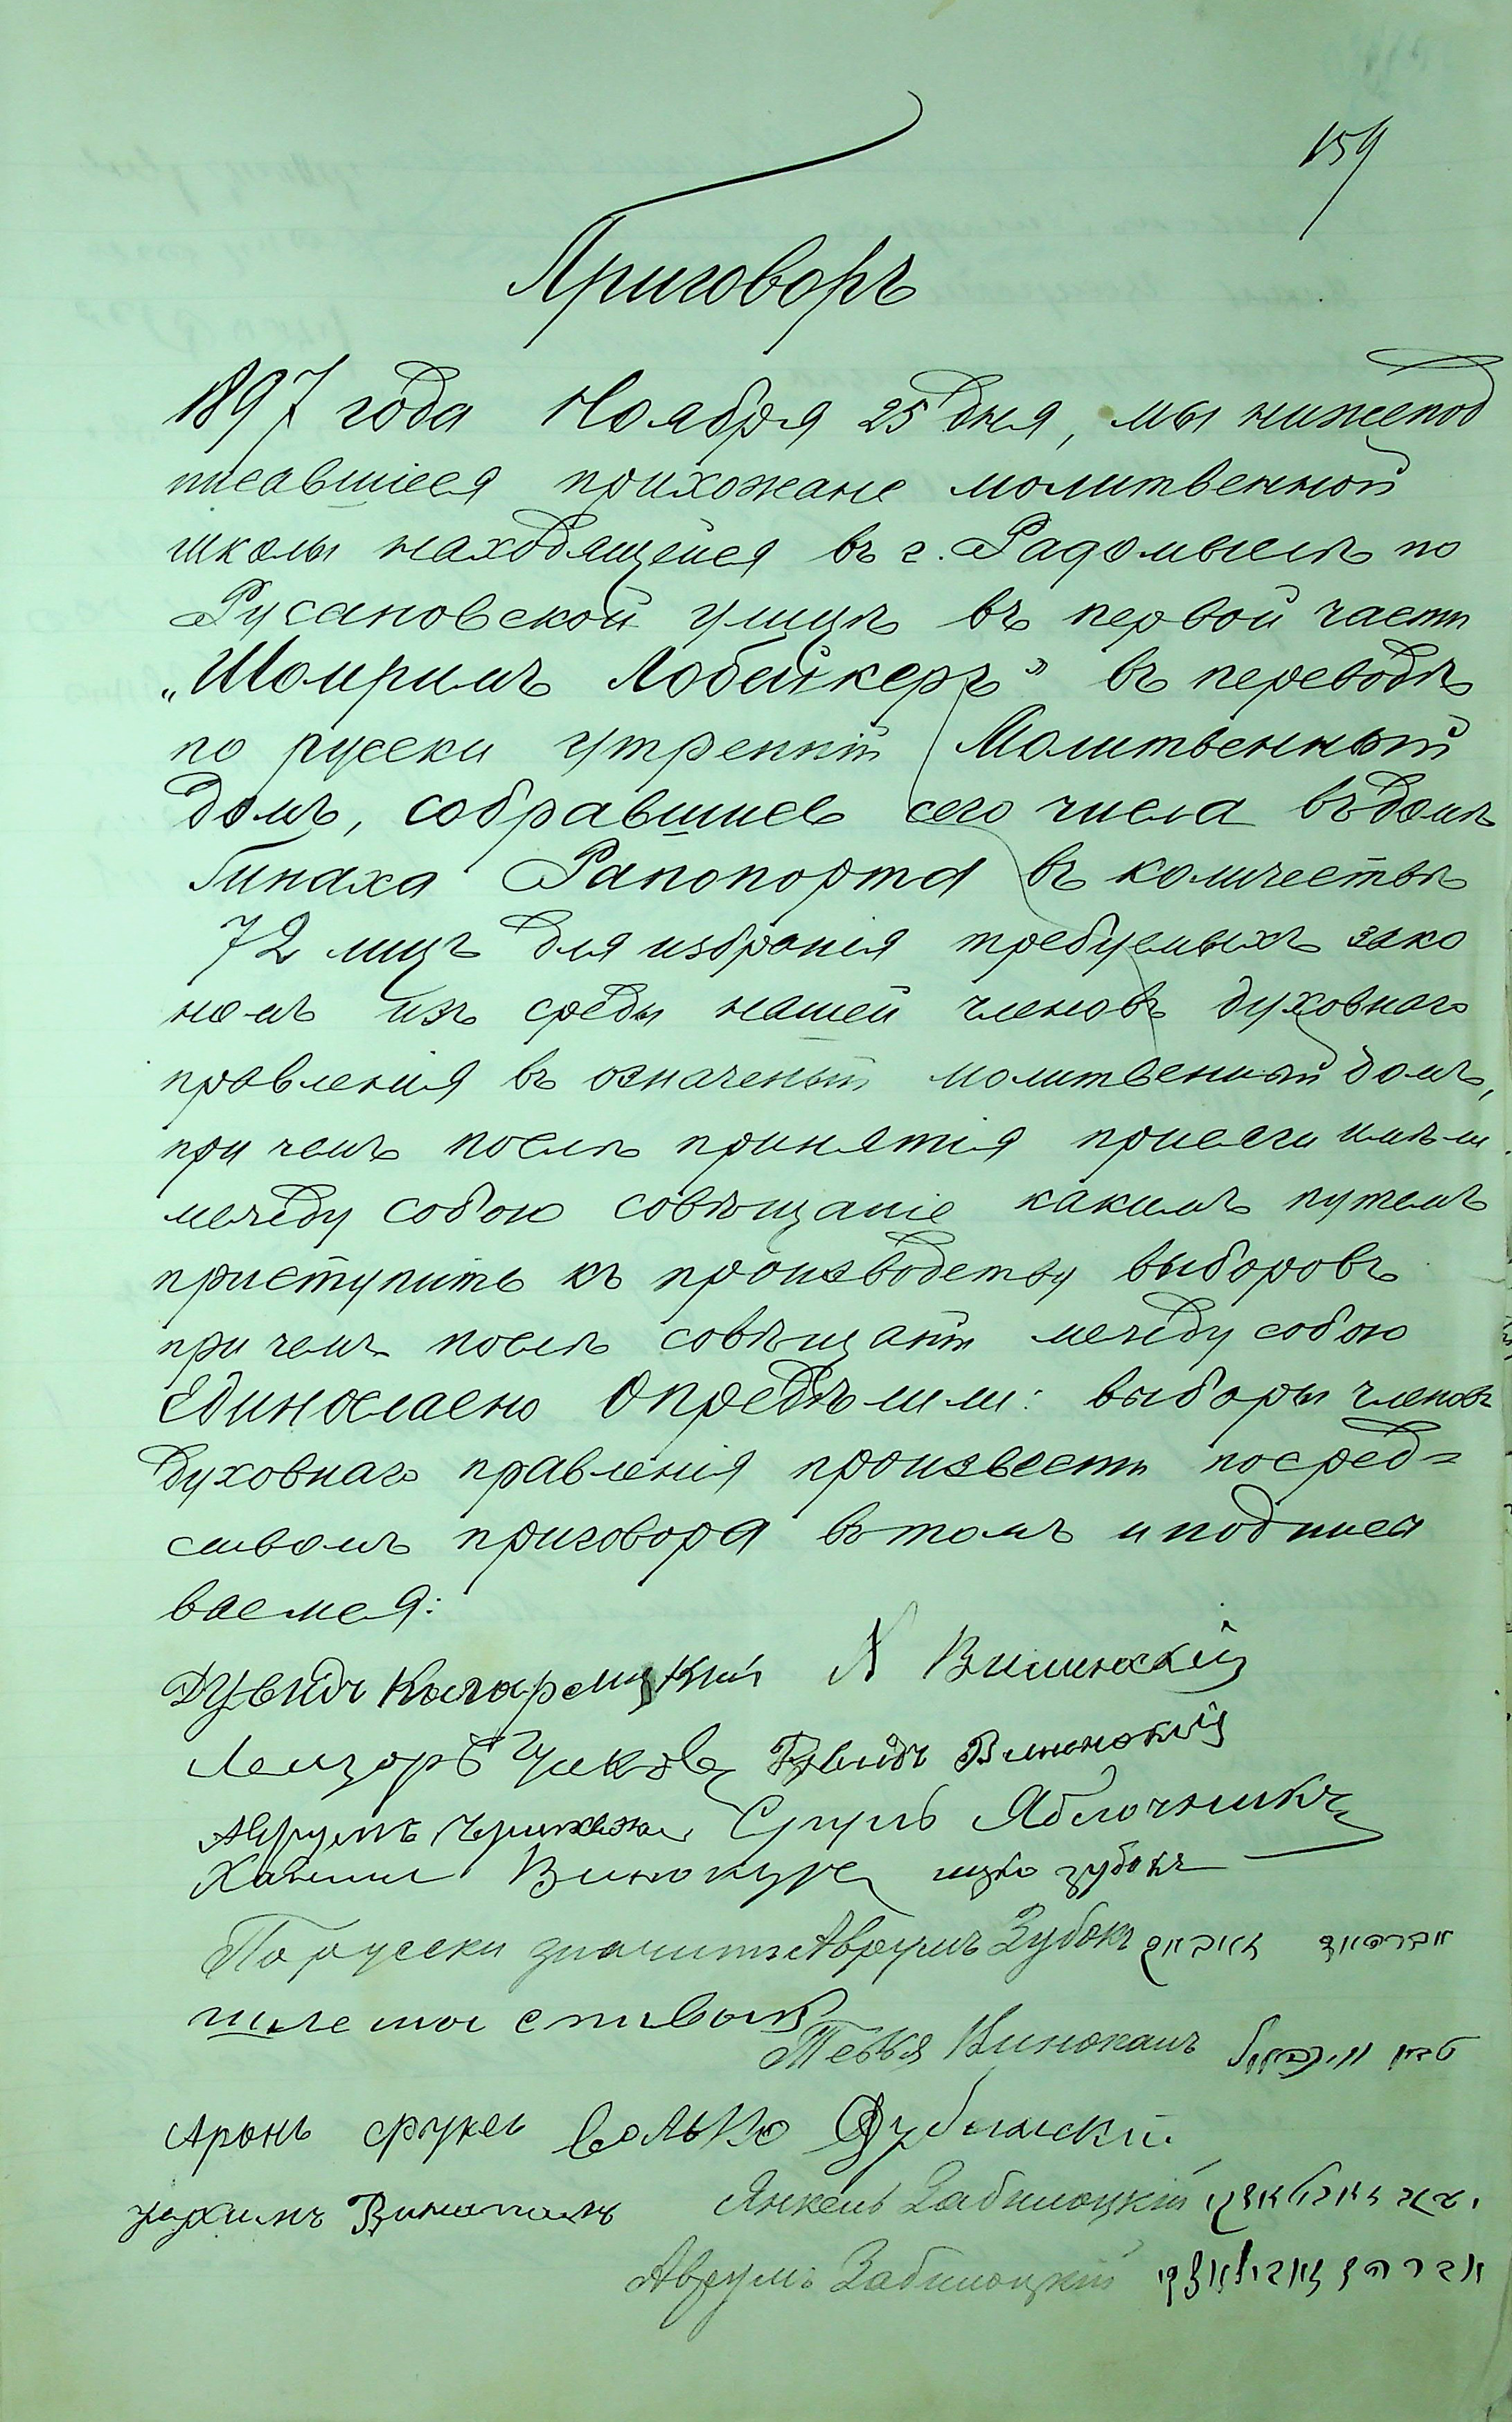 159
Приговоръ
1897 года Ноября 25 дня, мы нижепод
писавшіеся прихожане молитвенной
школы находящейся въ г. Радомыслѣ по
Русановской улицѣ въ первой части
„Шомримъ Лобейкеръ" въ переводѣ
по русски утренній Молитвенный
домъ, собравшись сего числа въ домѣ
Пинхаса Рапопорта въ количествѣ
72 лицъ для избранія требуемыхъ зако
номъ изъ среды нашей членовъ духовнаго
правленія въ означеный молитвенный домъ,
при чемъ послѣ принятія присяги имѣли
между собою совѣщаніе какимъ путемъ
приступить къ производству выборовъ
при чемъ послѣ совѣщаній между собою
Единогласно Опредѣлили: выборы членовъ
духовнаго правленія произвести посред=
ствомъ приговора въ томъ и подписы
ваемся:
Дувидъ
Дувидъ
Аврумъ Сруль Яблочникъ
Винокуръ ицко зубокъ
По русски значитъ Аврумъ Зубокъ
Тевья
Аронъ фуксъ Волько Дубинскій
Янкель Заблоцкій
Аврумъ Заблоцкій